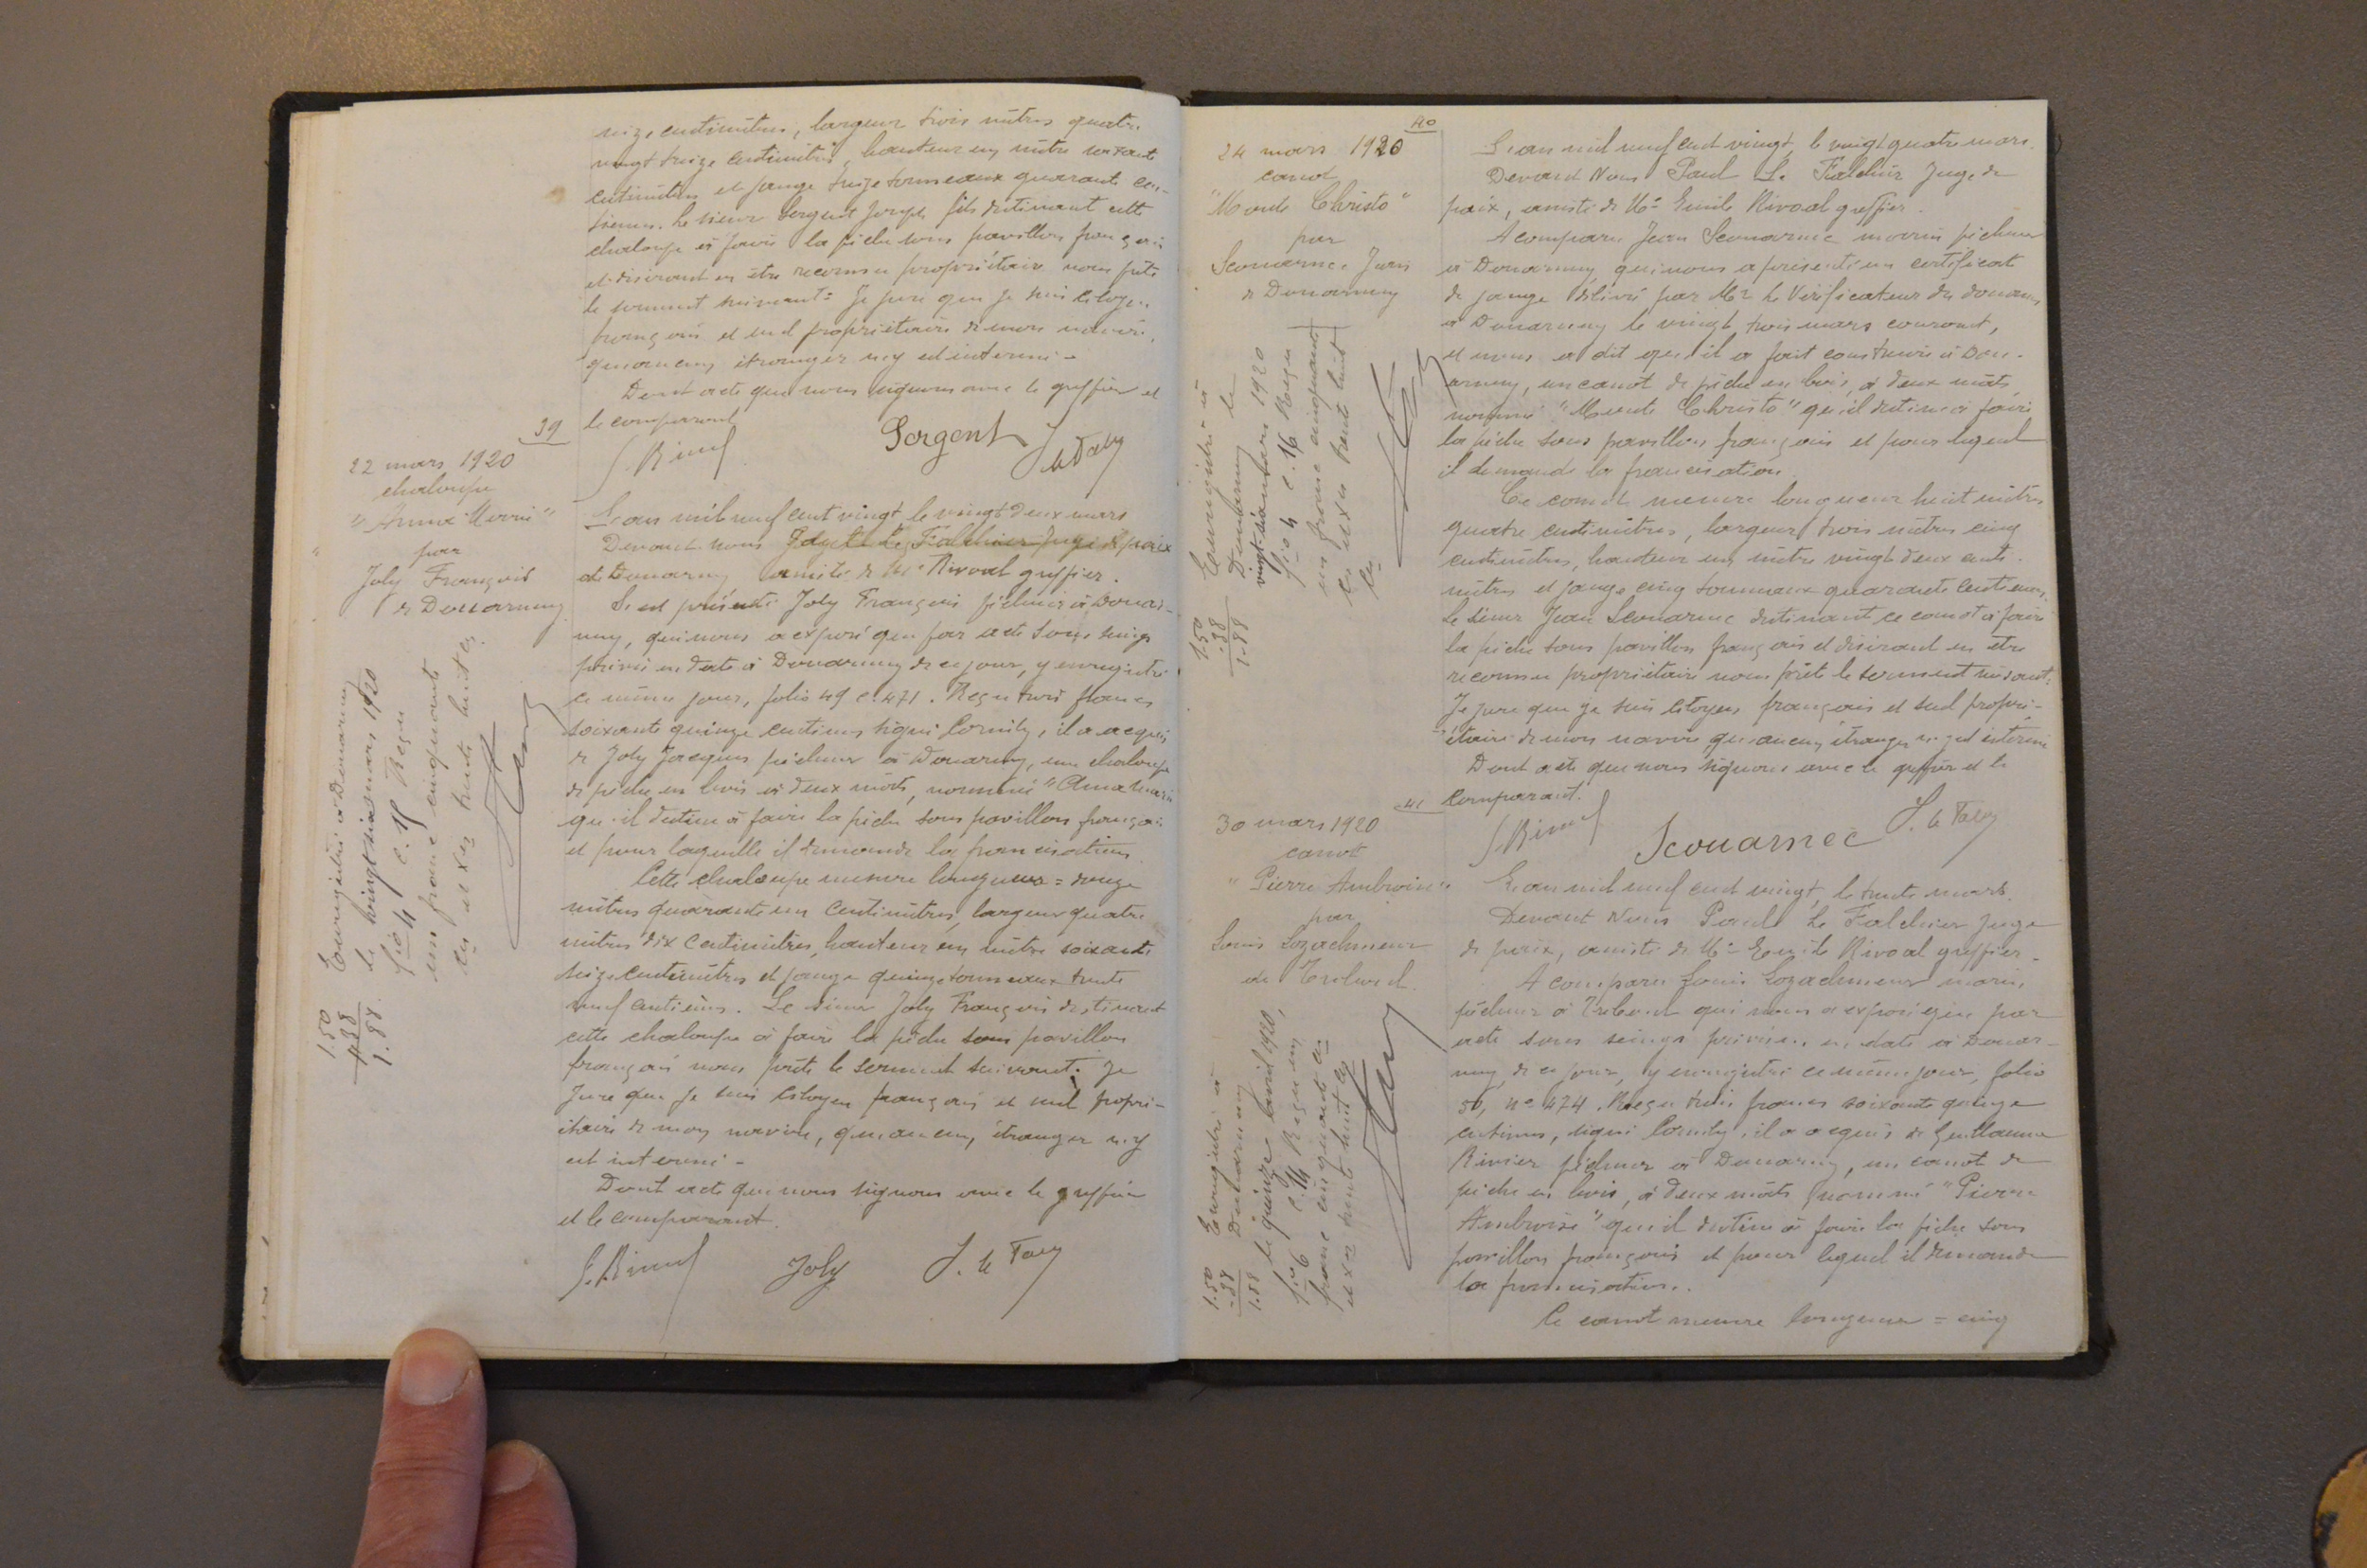 seize centimètres, largeur trois mètres quatre
vingt treize centimètres, hauteur un mètre soixante
centimètres et jauge treize tonneaux quarante cen-
tièmes. Le sieur Sergent Joseph fils destinant cette
chaloupe à faire la pêche sous pavillon français
et désirant en être reconnu propriétaire nous prête
le serment suivant: Je jure que je suis citoyen
français et seul propriétaire de mon navire,
qu'aucun étranger n'y est intéressé -
Dont acte que nous signons avec le greffier et
le comparant
Sergent
39
22 mars 1920
chaloupe
"Anna Maria"
par
Joly François
de Douarnenez
Enregistré à Douarnenez
le vingt six mars 1920
fo 4 c. 15 Reçu
un franc cinquante
ces et xes trente huit ces
1.50
38
1.88
L'an mil neuf cent vingt le vingt deux mars
Devant nous Le Falchier Juge de paix
de Douarnenez assisté de Me Rivoal greffier.
S'est présenté Joly François pêcheur à Douar-
nenez, qui nous a exposé que par acte sous seings
privés en date à Douarnenez de ce jour, y enregistré
ce même jour, folio 49 c. 471. Reçu trois francs
soixante quinze centimes signé Cornily, il a acquis
de Joly Jacques pêcheur à Douarnenez, une chaloupe
de pêche en bois à deux mâts, nommée "Anna Maria
qu'il destine à faire la pêche sous pavillon français
et pour laquelle il demande la francisation.
Cette chaloupe mesure longueur = douze
mètres quarante un centimètres, largeur quatre
mètres dix centimètres, hauteur un mètre soixante
seize centimètres et jauge quinze tonneaux trente
neuf centièmes. Le sieur Joly François destinant
cette chaloupe à faire la pêche sous pavillon
français nous prête le serment suivant: Je
Jure que je suis citoyen français et seul propri-
étaire de mon navire, qu'aucun étranger n'y
est intéressé -
Dont acte que nous signons avec le greffier
et le comparant.
Joly
40
24 mars 1920
canot
"Monte Christo"
par
Scouarnec Jean
de Douarnenez
Enregistré à
Douarnenez le
vingt six mars 1920
fo 4 c. 16 Reçu
un franc cinquante
ces et xes trente huit
ces
1.50
.38
1.88
L'an mil neuf cent vingt, le vingt quatre mars.
Devant Nous Paul Le Falchier Juge de
paix, assisté de Me Emile Rivoal greffier.
A comparu Jean Scouarnec marin pêcheur
à Douarnenez qui nous a présenté un certificat
de jauge délivré par Mr le Vérificateur des douanes
à Douarnenez le vingt trois mars courant,
et nous a dit qu'il a fait construire à Dou-
arnenez, un canot de pêche en bois, à deux mâts,
nommé "Monte Christo" qu'il destine à faire
la pêche sous pavillon français et pour lequel
il demande la francisation.
Ce canot mesure longueur huit mètres
quatre centimètres, largeur trois mètres cinq
centimètres, hauteur un mètre vingt deux centi-
mètres et jauge cinq tonneaux quarante centièmes.
Le sieur Jean Scouarnec destinant ce canot à faire
la pêche sous pavillon français et désirant en être
reconnu propriétaire nous prête le serment suivant:
Je jure que je suis citoyen français et seul propri-
étaire de mon navire qu'aucun étranger n'y est intéressé
Dont acte que nous signons avec le greffier et le
comparant.
Scouarnec
41
30 mars 1920
canot
"Pierre Ambroise"
par
Louis Lozachmeur
de Tréboul.
Enregistré à
Douarnenez
le quinze avril 1920,
fo 6 c. 14 Reçu un
franc cinquante ces
et xes trente huit ces
1.50
.38
1.88
L'an mil neuf cent vingt, le trente mars.
Devant Nous Paul Le Falchier Juge
de paix, assisté de Me Emile Rivoal greffier -
A comparu Louis Lozachmeur marin,
pêcheur à Tréboul qui nous a exposé que par
acte sous seings privés, en date à Douar-
nenez, de ce jour, y enregistré ce même jour, folio
50, no 474. Reçu trois francs soixante quinze
centimes, signé Cornily, il a acquis de Guillaume
Rivier pêcheur à Douarnenez, un canot de
pêche en bois, à deux mâts, nommé "Pierre
Ambroise" qu'il destine à faire la pêche sous
pavillon français et pour lequel il demande
la francisation.
Ce canot mesure longueur = cinq